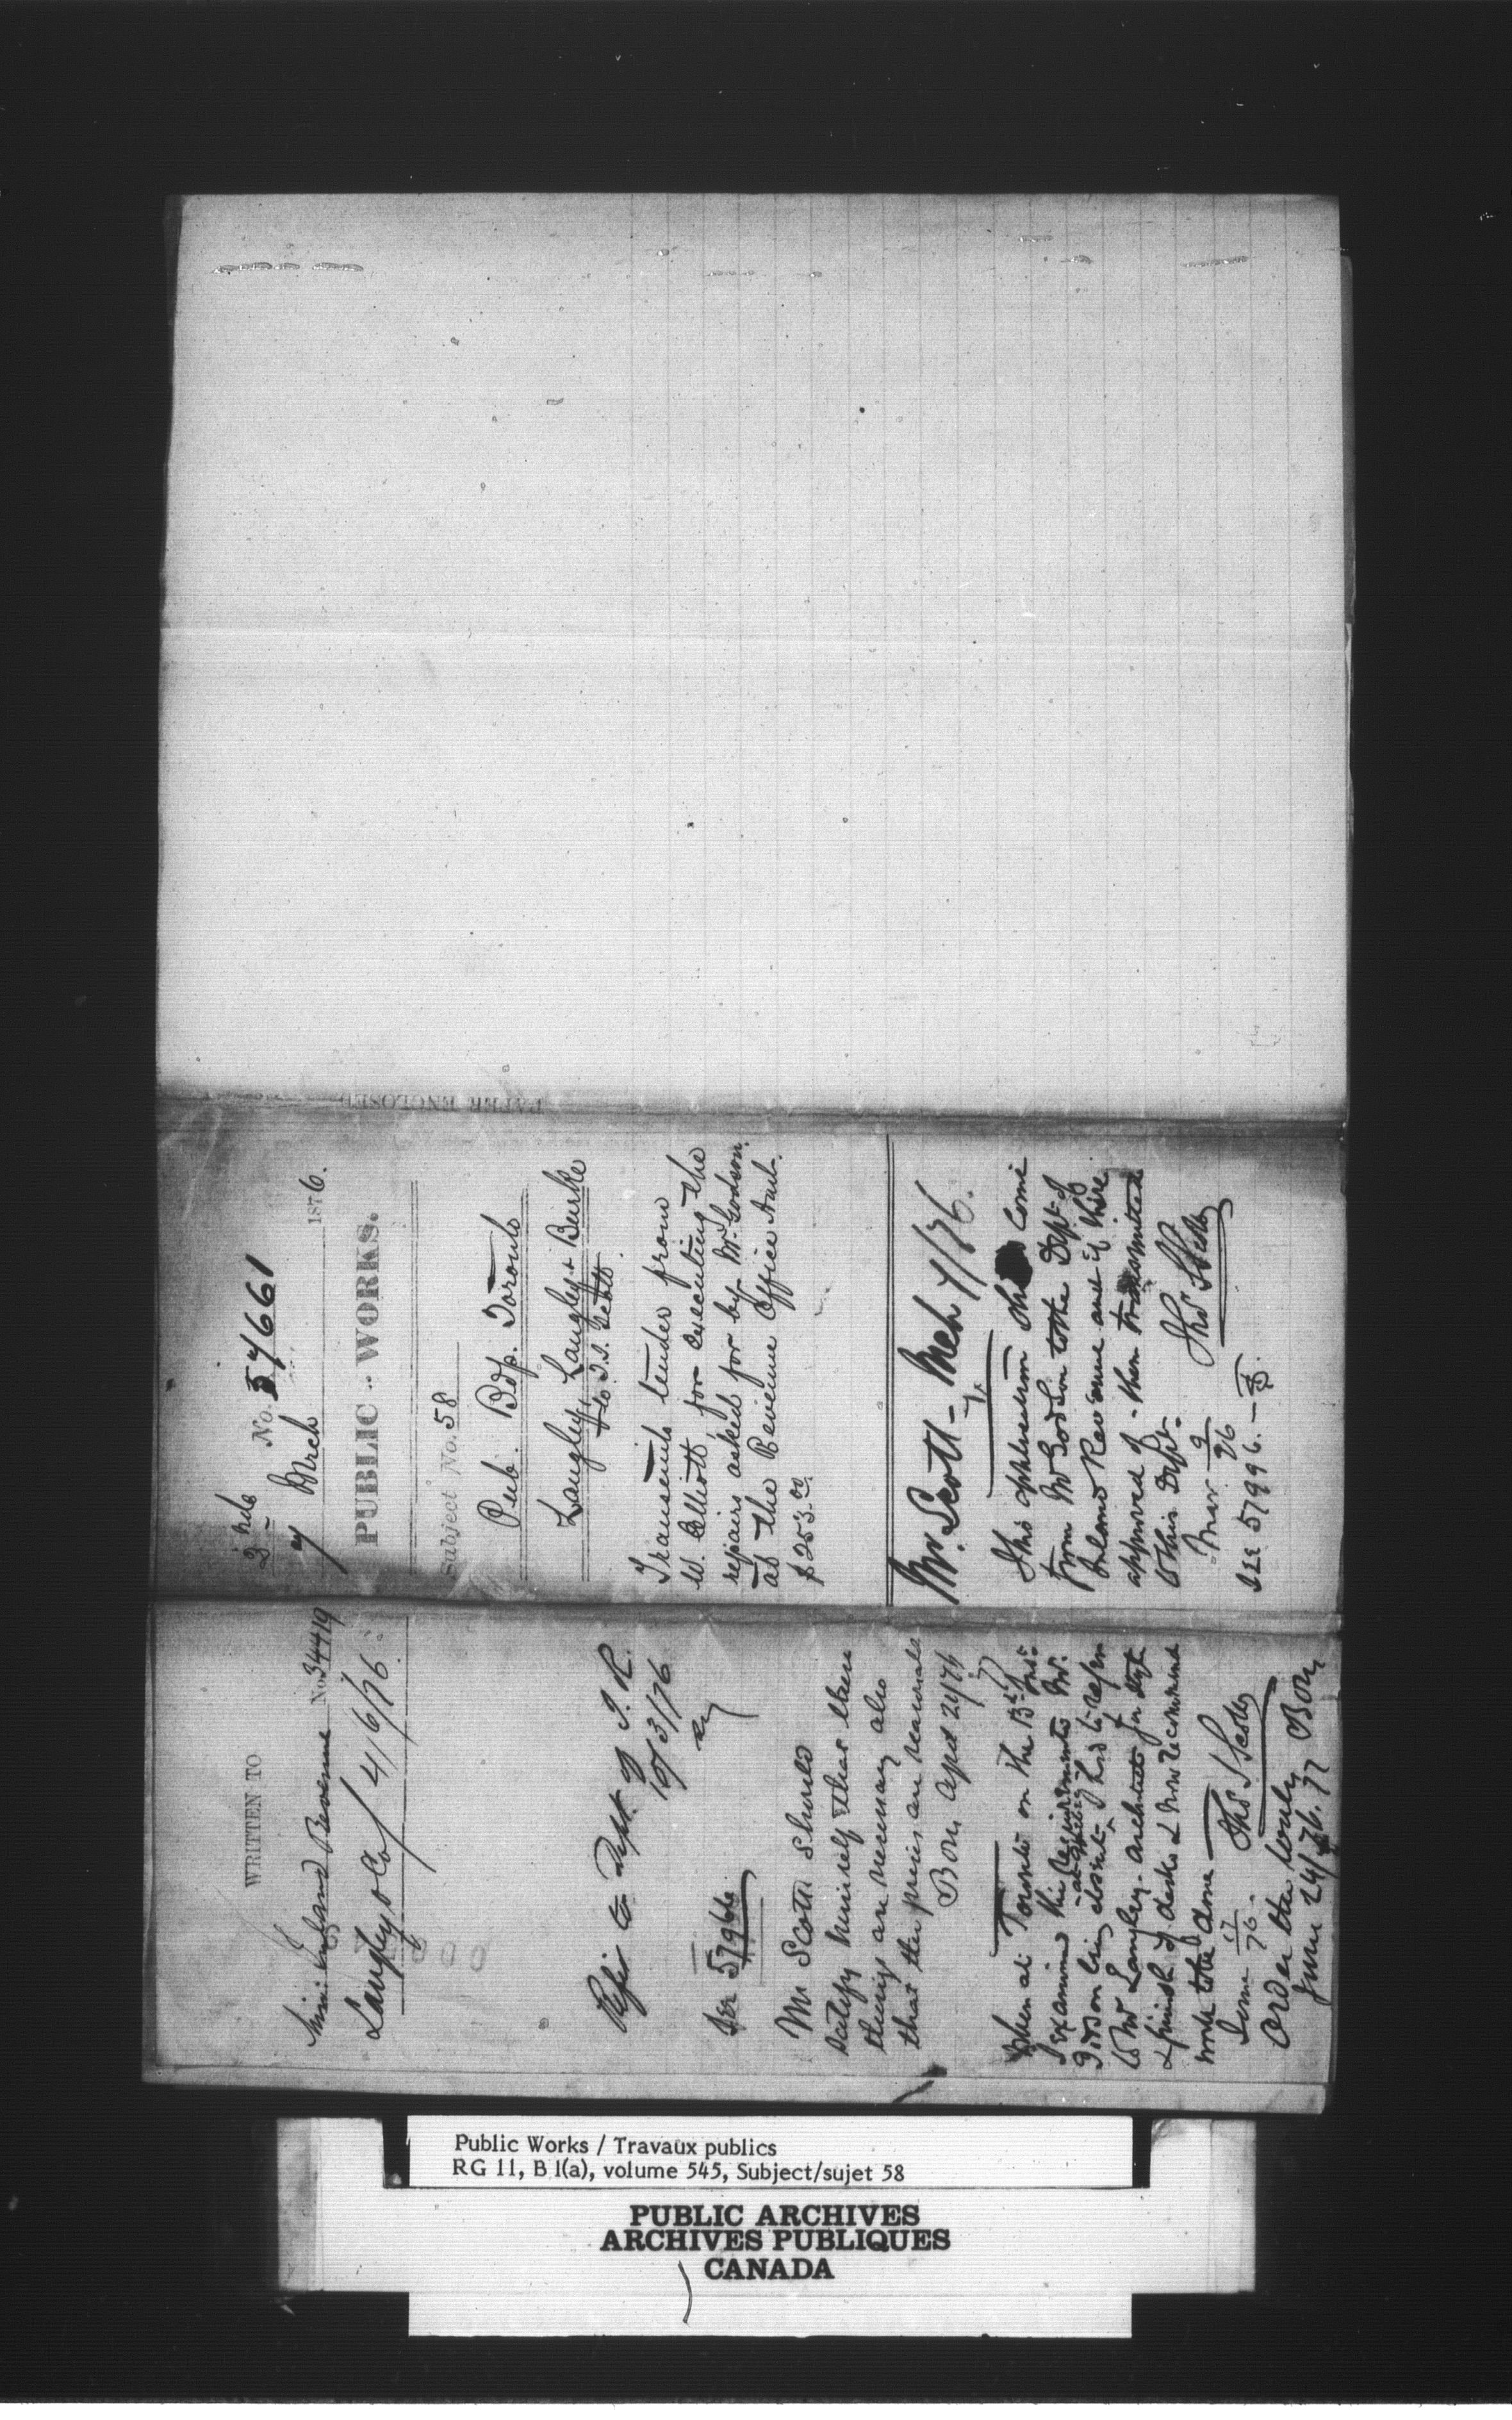 WRITTEN TO
Min: Inland Revenue No 34419
Langley & Co / 4/6/76.
Refer to Dept. of I. R.
10/3/76
See 57996
Mr Scott should
satisfy himself that these
things are necessary also
that the prices are reasonable
Apl 21/76
When at Toronto on the 13th Inst.
examined the requirements Mr.
Godson being absent
to Mr Langley. architect for style
& finish of desks & now recommend
work to be done
June 17/76. Thos S Scott
Order the work
June 24/76.
2 incls No. 57661
7 Mrch 1876.
PUBLIC WORKS.
Subject No. 58
Pub. Bdgs. Toronto
Langley, Langley & Burke
to T.S. Scott
Transmits tender from
W. Elliott, for executing the
repairs asked for by Mr Godson
at the Revenue Office Amt.
$253.00
Mr. Scott - Mch 7/76.
This application should come
from Mr Godson to the Dept of
Inland Revenue and if there
approved of - then transmitted
to this Dept.
Mar 9/76 Thos S Scott
See 57996.
PAPER ENCLOSED
Public Works / Travaux publics
RG 11, B 1(a), volume 545, Subject/sujet 58
PUBLIC ARCHIVES
ARCHIVES PUBLIQUES
CANADA